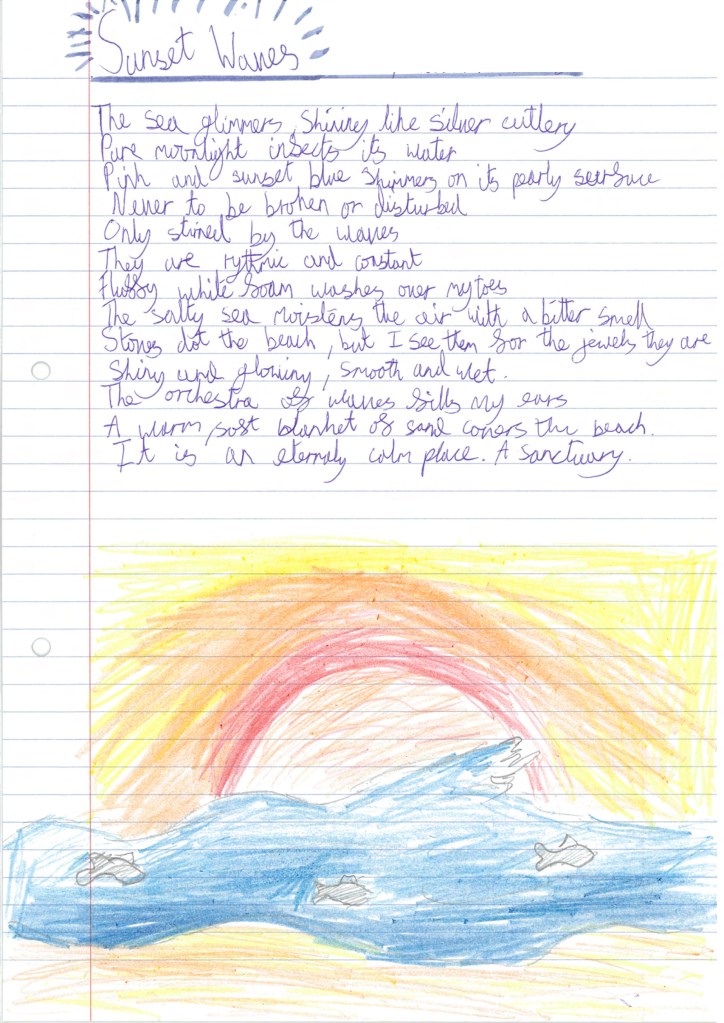 Sunset Waves
The sea glimmers, shining like silver cutlery
Pure moonlight insects its water
Pink and sunset blue shimmers on its pearly seursuce
Never to be broken or disturbed
Only stirred by the waves
They are rythmic and constant
Fluffy white foam washes over my toes
The salty sea moistens the air with a bitter smell
Stones dot the beach, but I see them for the jewels they are
Shiny and glowing, smooth and wet.
The orchestra of waves fills my ears
A warm, soft blanket of sand covers the beach.
It is an eternaly calm place. A sanctuary.